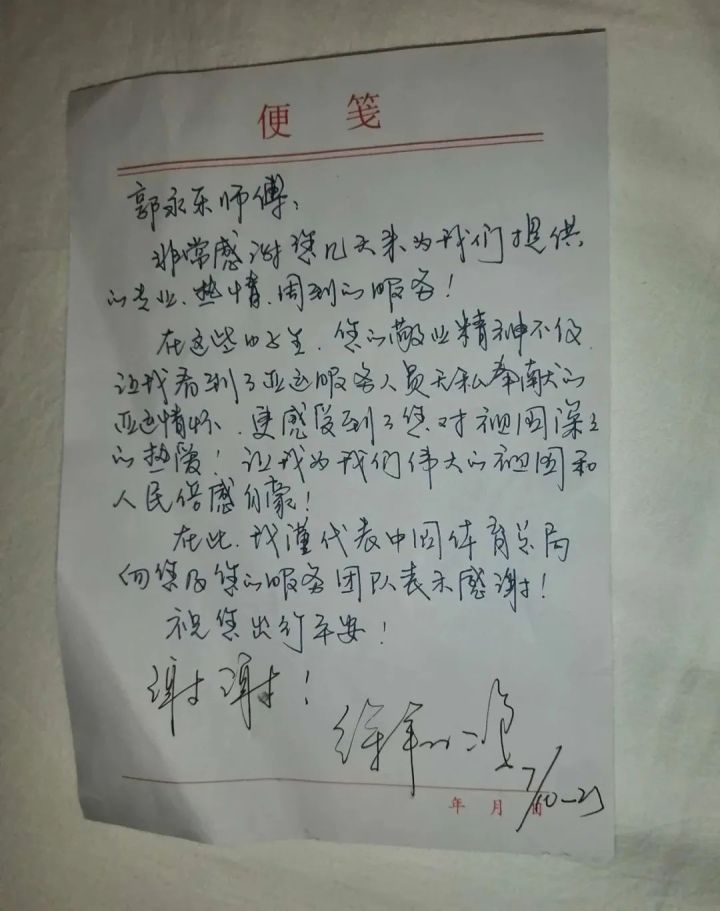 便 笺
郭永乐师傅：
非常感谢您几天来为我们提供
的专业、热情、周到的服务！
在这些日子里，您的敬业精神不仅
让我看到了亚运服务人员无私奉献的
亚运情怀、更感受到了您对祖国深深
的热爱！让我为我们伟大的祖国和
人民倍感自豪！
在此，我谨代表中国体育总局
向您及您的服务团队表示感谢！
祝您出行平安！
谢谢！
年 月 日